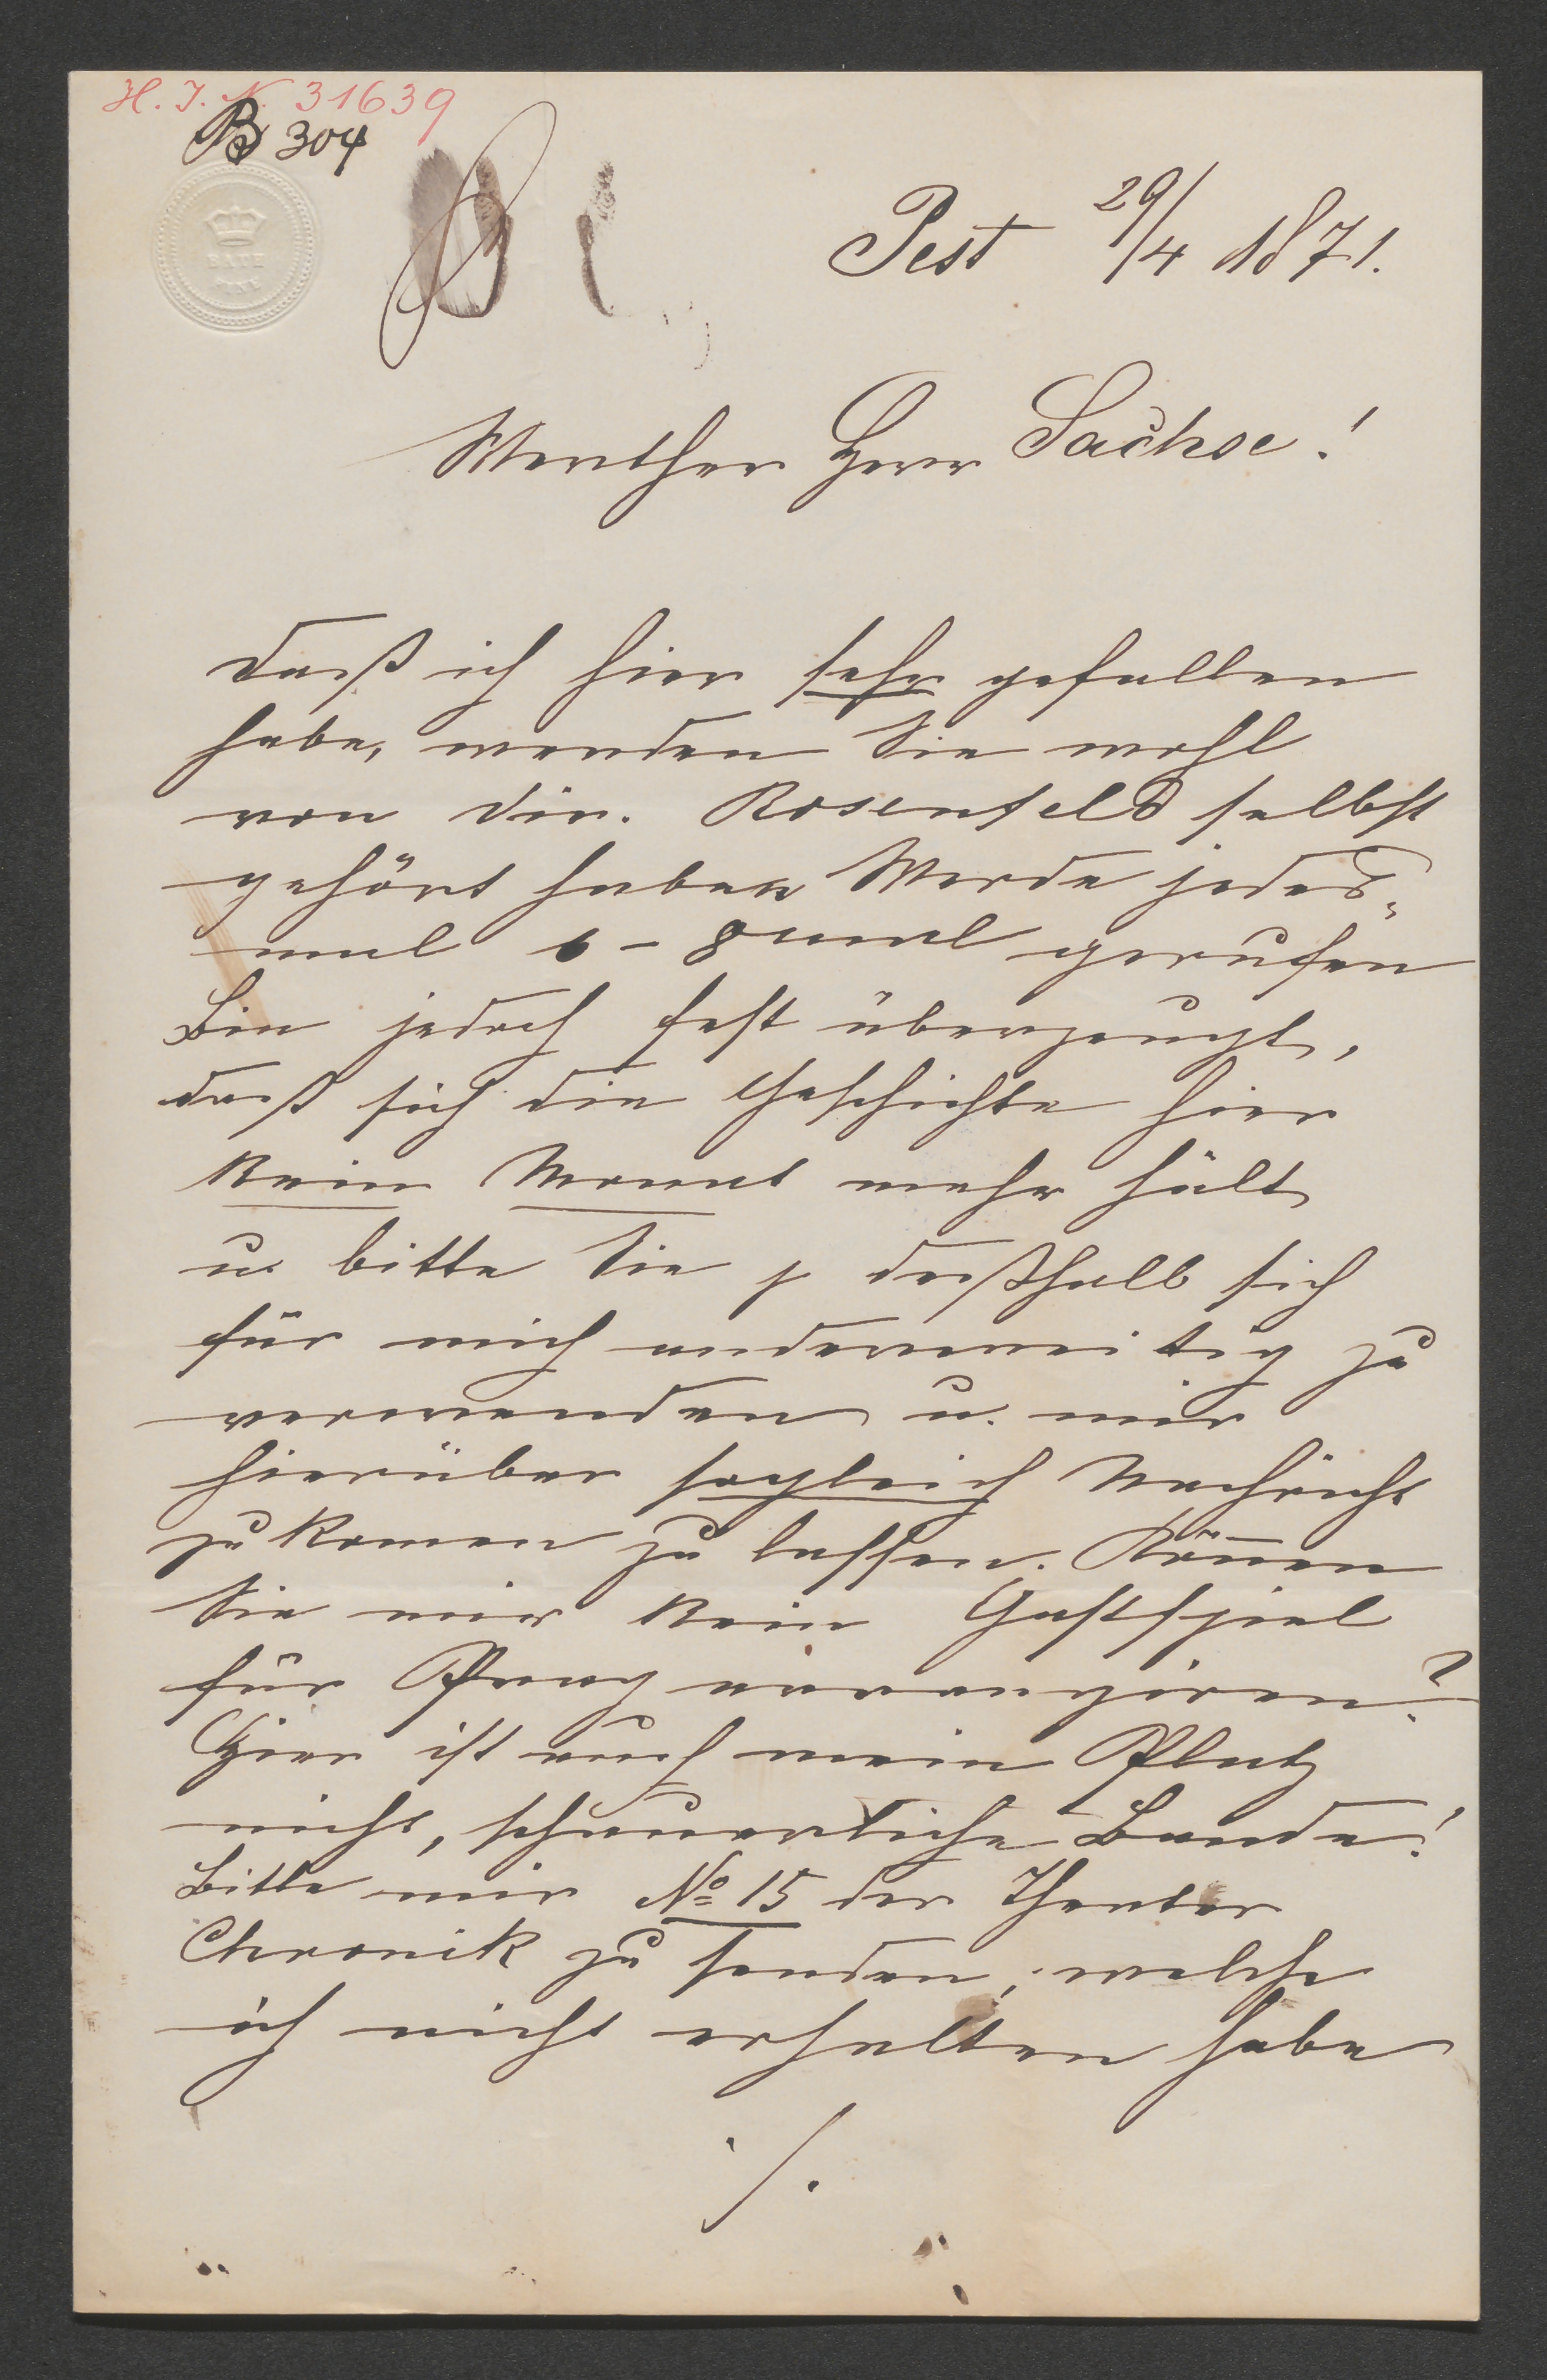 H. I. N. 31639
B 304
Pest 29/4 1871.
Werther Herr Sachse!
Daß ich hier sehr gefallen
habe, werden Sie wohl
von Dir. Rosenfeld selbst
gehört haben Werde jedes„
mal 6 – 8 mal gerufen
Bin jedoch fest überzeugt,
daß sich die Geschichte hier
kein Monat mehr hält
u. bitte Sie deßhalb sich
für mich anderweitig zu
verwenden u. mir
hierüber sogleich Nachricht
zu komen zu lassen. Kön̄en
Sie mir kein Gastspiel
für Prag arrangiren?
Hier ist auch mein Platz
nicht, schauerliche Bande!
Bitte mir No 15 der Theater
Chronik zu senden, welche
ich nicht erhalten habe
./.